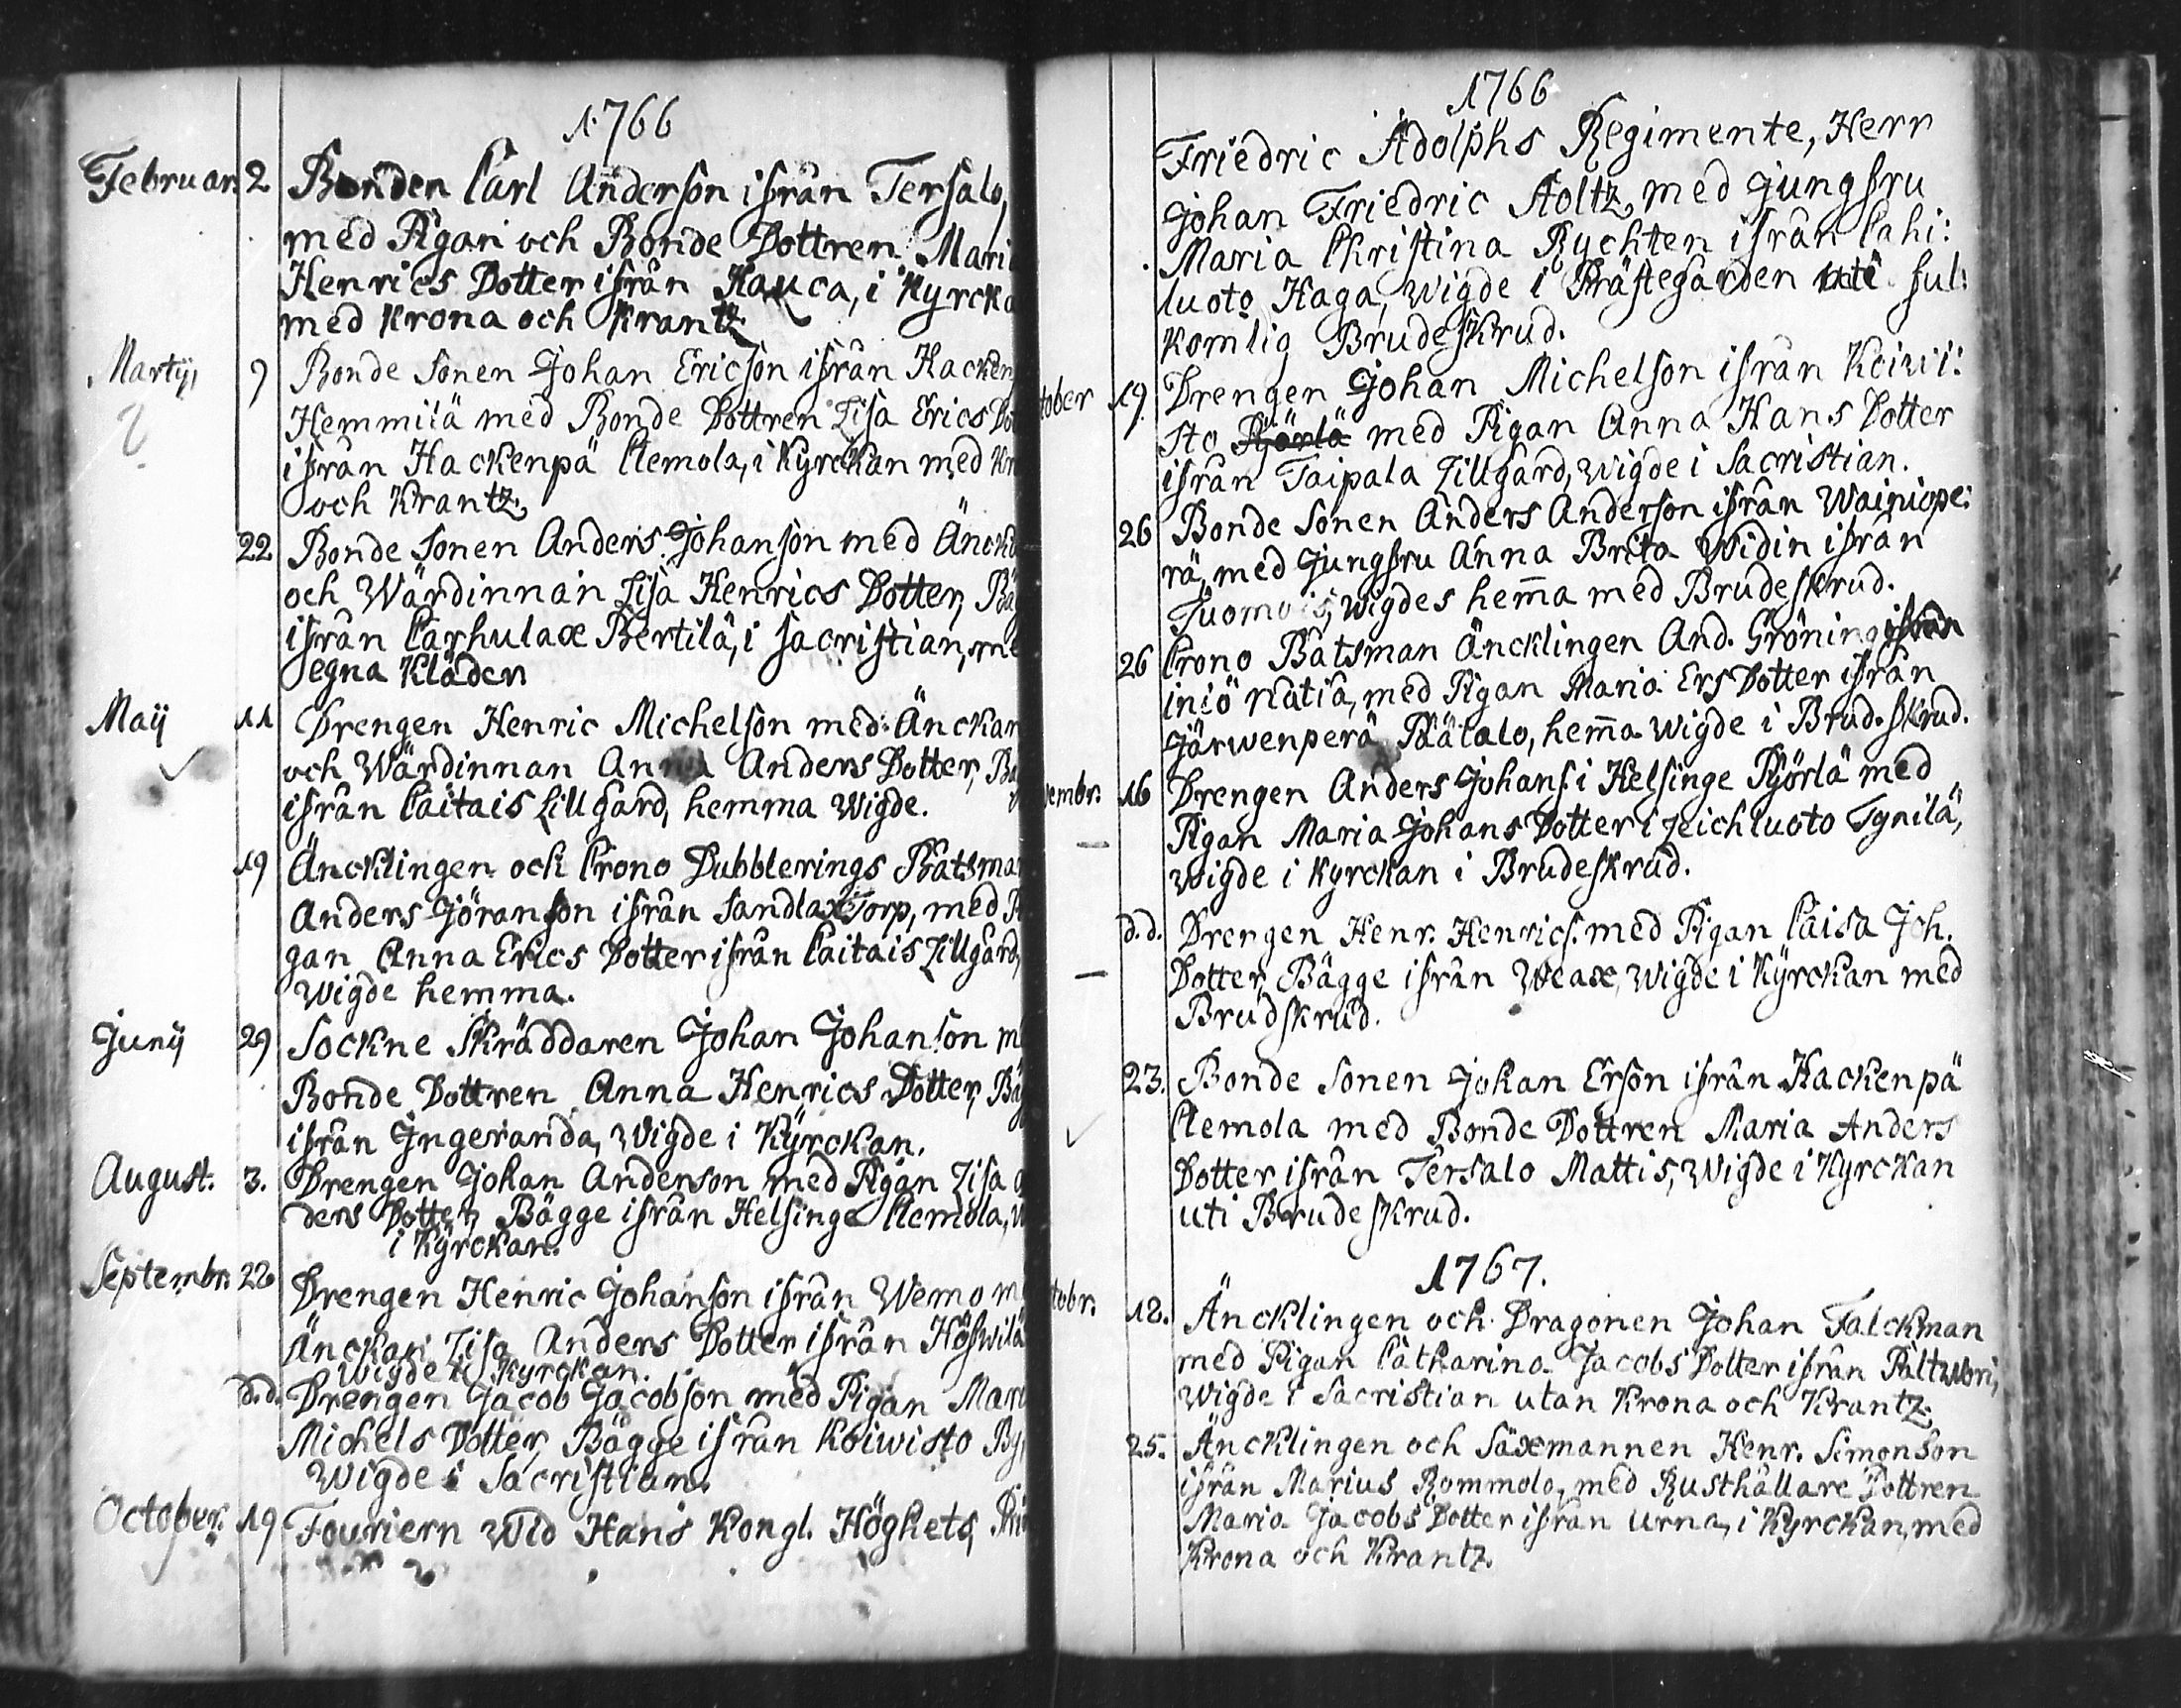 1766
Februar. 2 Bonden Carl Anderson ifrån Tersalo,
med Pigan och Bonde Dottren Mari
Henrics Dotter ifrån Kauca, i Kyrcka
med Krona och Krantz
Martij, 9 Bonde Sonen Johan Ericson ifrån Hacken
Hemmilä med Bonde Dottren Lisa Erics Dot
ifrån Hackenpä Clemola, i Kyrckan med Kr
och Krantz,
22 Bonde Sonen Anders Johanson med Änck
och Wärdinnan Lisa Henrics Dotter, Bäg
ifrån Carhulax Bertilä, i Sacristian, me
egna Kläder
Maij 11 Drengen Henric Michelson med Änckan
och Wärdinnan Anna Anders Dotter, Bä
ifrån Caitais Lillgård, hemma Wigde.
19 Äncklingen och Crono Dubblerings Båtsma
Anders Jöranson ifrån Sandlax Torp, med Pi
gan Anna Erics Dotter ifrån Caitais Lillgård,
Wigde hemma.
Junij 29 Sockne Skräddaren Johan Johanson m
Bonde Dottren Anna Henrics Dotter, Bäg
ifrån Ingeranda, Wigde i Kyrckan.
August. 3. Drengen Johan Anderson med Pigan Lisa
ders Dotter, Bägge ifrån Helsinge Clemola, W
i Kyrckan.
Septembr. 22 Drengen Henric Johanson ifrån Wemo m
Änckan Lisa Anders Dotter ifrån Höswilä
Wigde i Kyrckan.
d.d. Drengen Jacob Jacobson med Pigan Mari
Michels Dotter, Bägge ifrån Koiwisto By,
Wigde i Sacristian.
October. 19 Fouriern Wid Hans Kongl. Höghets, Pri
1766
Friedric Adolphs Regimente, Herr
Johan Friedric Stoltz, med Jungfru
Maria Christina Rychten ifrån Cahi:
luoto Haga, Wigde i Prästegården uti ful:
komlig Brudeskrud.
tober 19. Drengen Johan Michelson ifrån Koiwi:
sto Pyörlä med Pigan Anna Hans Dotter
ifrån Taipala Lillgård, Wigde i Sacristian.
26 Bonde Sonen Anders Anderson ifrån Wainiope:
rä, med Jungfru Anna Brita Widin ifrån
Tuomois, wigdes hem̄a med Brudeskrud.
26 Crono Båtsman Äncklingen And. Gröning ifrån
iniö Natia, med Pigan Maria Ers Dotter ifrån
Järwenperä Päätalo, hem̄a Wigde i Brud. skrud.
vembr. 16 Drengen Anders Johans. i Helsinge Pyörlä med
Pigan Maria Johans Dotter i Leichluoto Tynilä,
Wigde i Kyrckan i Brudeskrud.
d.d. Drengen Henr. Henrics. med Pigan Caisa Joh.
Dotter, Bägge ifrån Weax, Wigde i Kyrckan med
Brudskrud.
23. Bonde Sonen Johan Erson ifrån Hackenpä
Clemola med Bonde Dottren Maria Anders
Dotter ifrån Tersalo Mattis, Wigde i Kyrckan
uti Brudeskrud.
1767.
tobr. 18. Äncklingen och Dragonen Johan Falckman
med Pigan Catharina Jacobs Dotter ifrån Paltwori,
Wigde i Sacristian utan Krona och Krantz.
25. Äncklingen och Säxmannen Henr. Simonson
ifrån Marius Rommolo, med Rusthållare Dottren
Maria Jacobs Dotter ifrån Urna, i Kyrckan, med
Krona och Krantz.